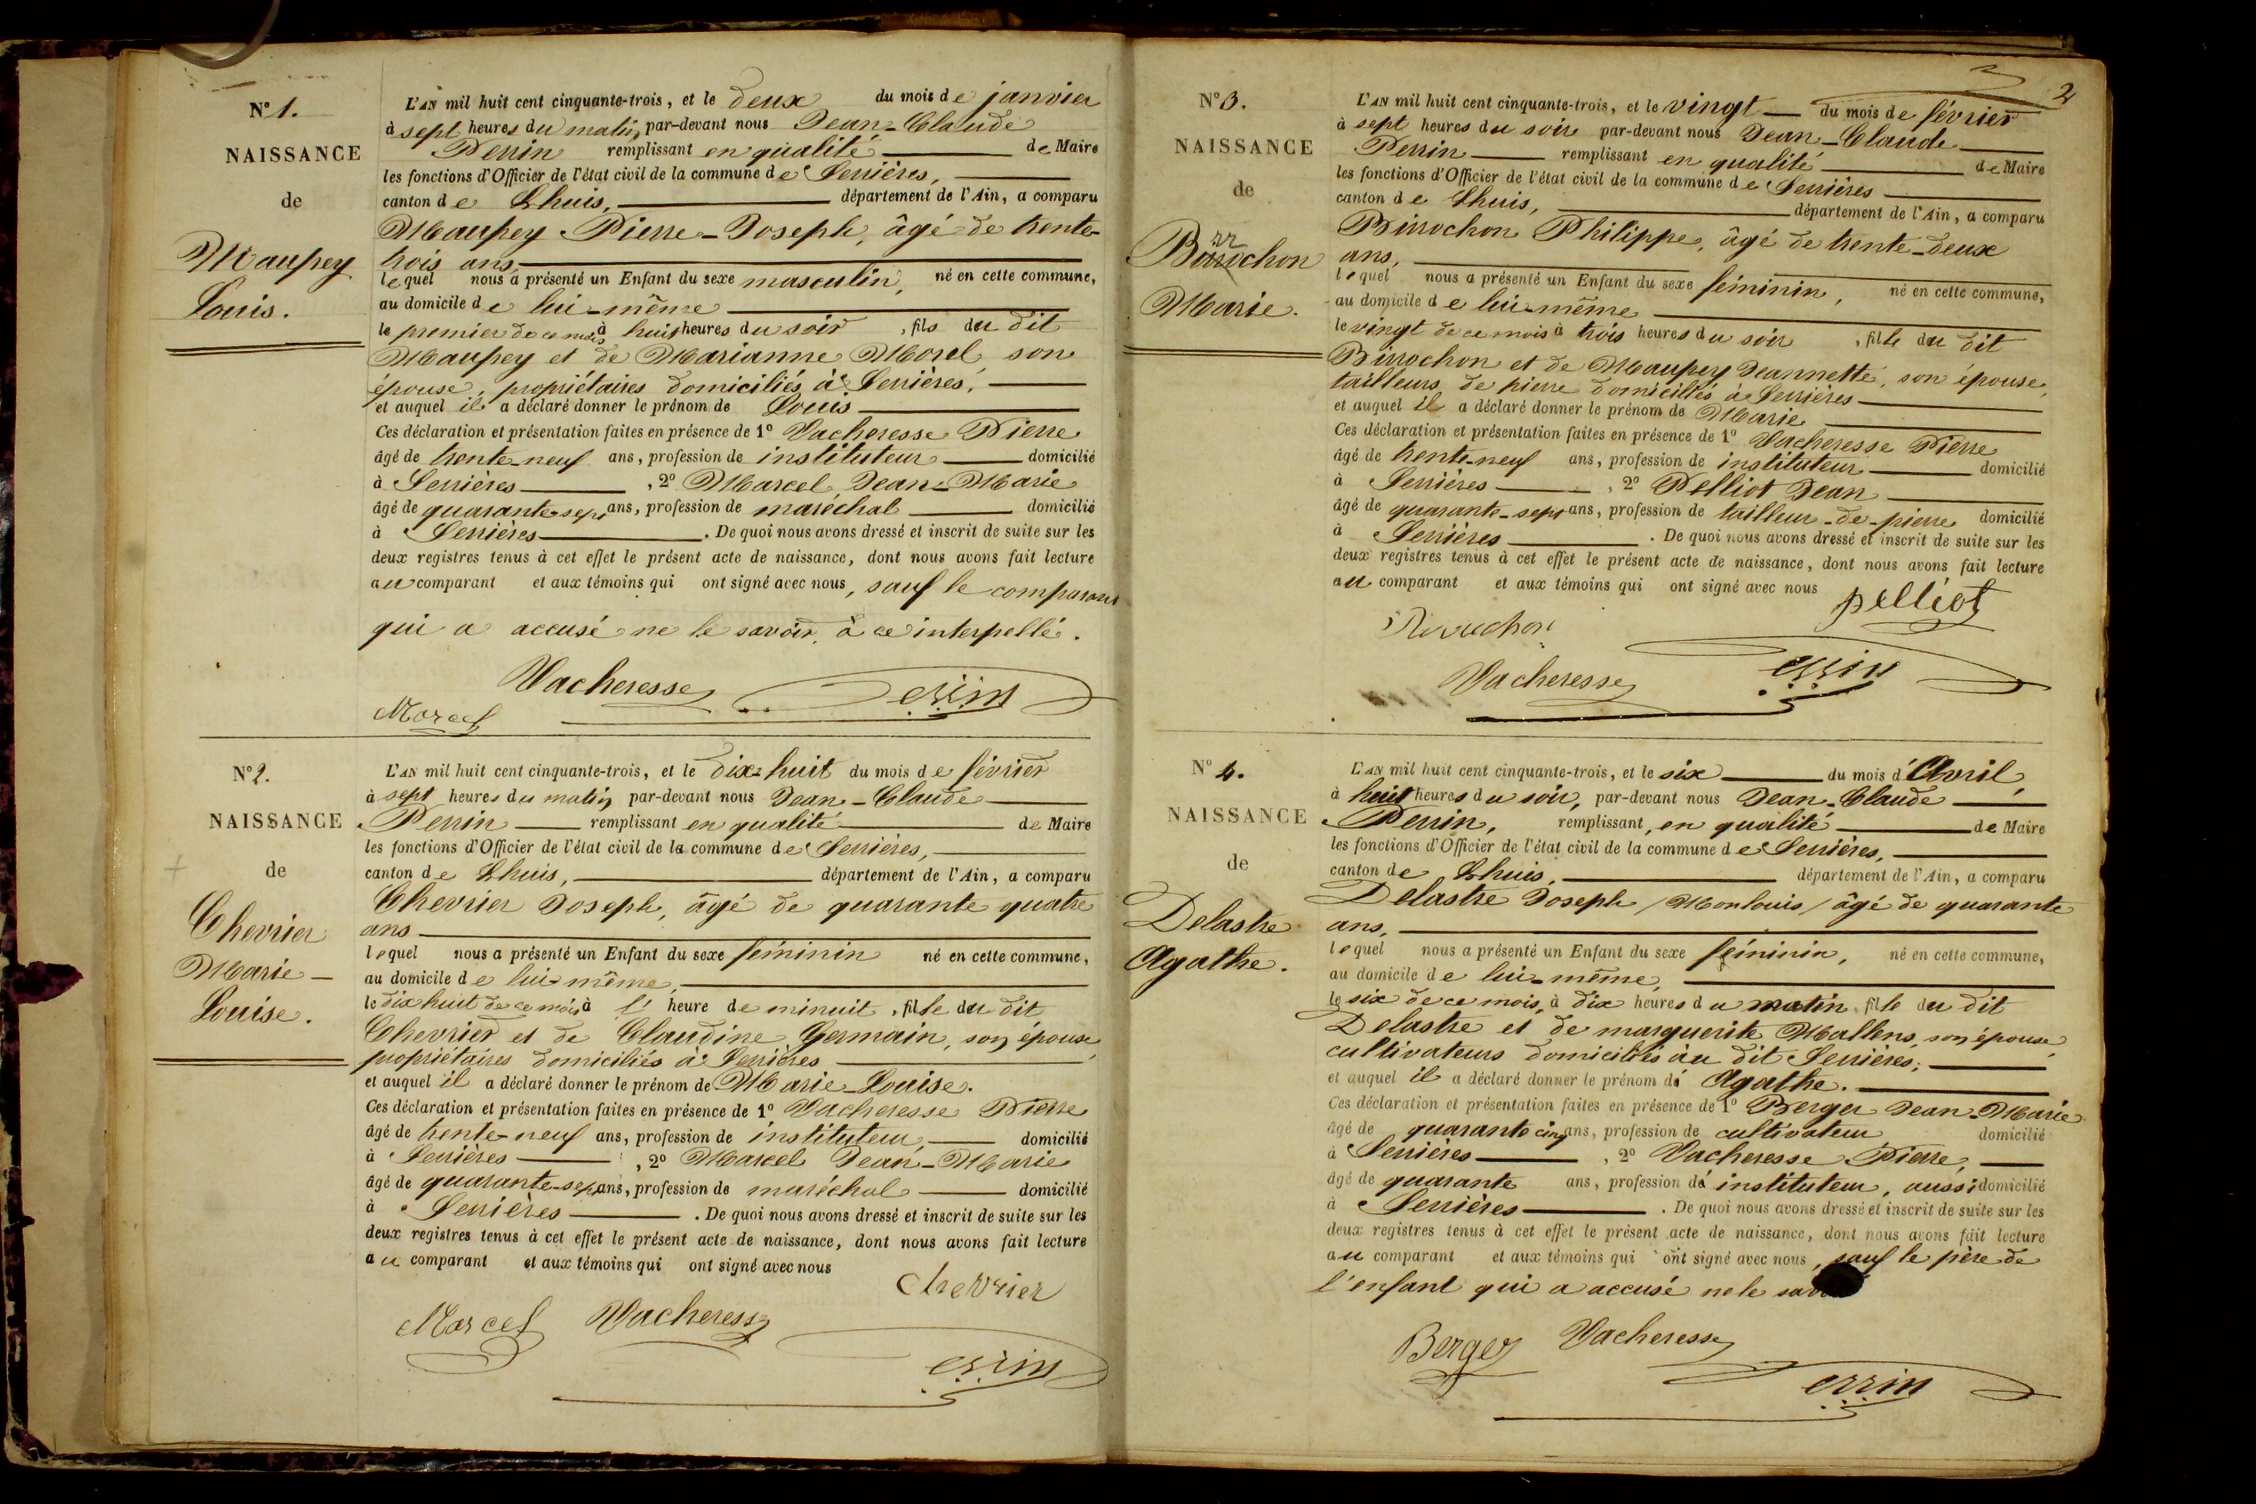 N° 1.
NAISSANCE
de
Maupey
Louis.
L'AN mil huit cent cinquante-trois, et le deux du mois de janvier
à sept heures du matin, par-devant nous Jean-Claude
Perrin remplissant en qualité de Maire
les fonctions d'Officier de l'état civil de la commune de Serrières,
canton de Lhuis, département de l'Ain, a comparu
Maupey Pierre-Joseph, âgé de trente-
trois ans,
lequel nous a présenté un Enfant du sexe masculin, né en cette commune,
au domicile de lui-même
le premier de ce mois à huit heures du soir, fils du dit
Maupey et de Marianne Morel son
épouse, propriétaires domiciliés à Serrières,
et auquel il a déclaré donner le prénom de Louis
Ces déclaration et présentation faites en présence de 1° Vacheresse Pierre
âgé de trente-neuf ans, profession de instituteur domicilié
à Serrières, 2° Marcel Jean-Marie
âgé de quarante-sept ans, profession de maréchal domicilié
à Serrières. De quoi nous avons dressé et inscrit de suite sur les
deux registres tenus à cet effet le présent acte de naissance, dont nous avons fait lecture
au comparant et aux témoins qui ont signé avec nous, sauf le comparant
qui a accusé ne le savoir, à ce interpellé.
Vacheresse Perrin
Marcel
N° 2.
NAISSANCE
de
Chevrier
Marie-
Louise.
L'AN mil huit cent cinquante-trois, et le dix-huit du mois de février
à sept heures du matin par-devant nous Jean-Claude
Perrin remplissant en qualité de Maire
les fonctions d'Officier de l'état civil de la commune de Serrières,
canton de Lhuis, département de l'Ain, a comparu
Chevrier Joseph, âgé de quarante quatre
ans
lequel nous a présenté un Enfant du sexe féminin né en cette commune,
au domicile de lui-même,
le dix huit de ce mois à l' heure de minuit, fille du dit
Chevrier et de Claudine Germain, son épouse,
propriétaires domiciliés à Serrières
et auquel il a déclaré donner le prénom de Marie-Louise.
Ces déclaration et présentation faites en présence de 1° Vacheresse Pierre
âgé de trente-neuf ans, profession de instituteur domicilié
à Serrières, 2° Marcel Jean-Marie
âgé de quarante-sept ans, profession de maréchal domicilié
à Serrières. De quoi nous avons dressé et inscrit de suite sur les
deux registres tenus à cet effet le présent acte de naissance, dont nous avons fait lecture
au comparant et aux témoins qui ont signé avec nous
Chevrier
Marcel Vacheresse
Perrin
2
N° 3.
NAISSANCE
de
rr
Marie.
L'AN mil huit cent cinquante-trois, et le vingt du mois de février
à sept heures du soir par-devant nous Jean-Claude
Perrin remplissant en qualité de Maire
les fonctions d'Officier de l'état civil de la commune de Serrières
canton de Lhuis, département de l'Ain, a comparu
Birrochon Philippe, âgé de trente-deux
ans,
lequel nous a présenté un Enfant du sexe féminin, né en cette commune,
au domicile de lui-même
le vingt de ce mois à trois heures du soir, fille du dit
Birrochon et de Maupey Jeannette, son épouse,
tailleurs de pierre domiciliés à Serrières
et auquel il a déclaré donner le prénom de Marie
Ces déclaration et présentation faites en présence de 1° Vacheresse Pierre
âgé de trente-neuf ans, profession de instituteur domicilié
à Serrières, 2° Pelliot Jean
âgé de quarante-sept ans, profession de tailleur-de-pierre domicilié
à Serrières. De quoi nous avons dressé et inscrit de suite sur les
deux registres tenus à cet effet le présent acte de naissance, dont nous avons fait lecture
au comparant et aux témoins qui ont signé avec nous
pelliot
Vacheresse Perrin
N° 4.
NAISSANCE
de
Delastre
Agathe.
L'AN mil huit cent cinquante-trois, et le six du mois d'Avril,
à huit heures du soir, par-devant nous Jean-Claude
Perrin, remplissant, en qualité de Maire
les fonctions d'Officier de l'état civil de la commune de Serrières,
canton de Lhuis, département de l'Ain, a comparu
Delastre Joseph / Monlouis / âgé de quarante
ans,
lequel nous a présenté un Enfant du sexe féminin, né en cette commune,
au domicile de lui-même,
le six de ce mois, à dix heures du matin fille du dit
Delastre et de marguerite Mallens, son épouse,
cultivateurs domiciliés au dit Serrières;
et auquel il a déclaré donner le prénom d' Agathe.
Ces déclaration et présentation faites en présence de 1° Berger Jean-Marie
âgé de quarante cinq ans, profession de cultivateur domicilié
à Serrières, 2° Vacheresse Pierre,
âgé de quarante ans, profession d' instituteur, aussi domicilié
à Serrières. De quoi nous avons dressé et inscrit de suite sur les
deux registres tenus à cet effet le présent acte de naissance, dont nous avons fait lecture
au comparant et aux témoins qui ont signé avec nous, sauf le père de
l'enfant qui a accusé ne le
Berger Vacheresse
Perrin